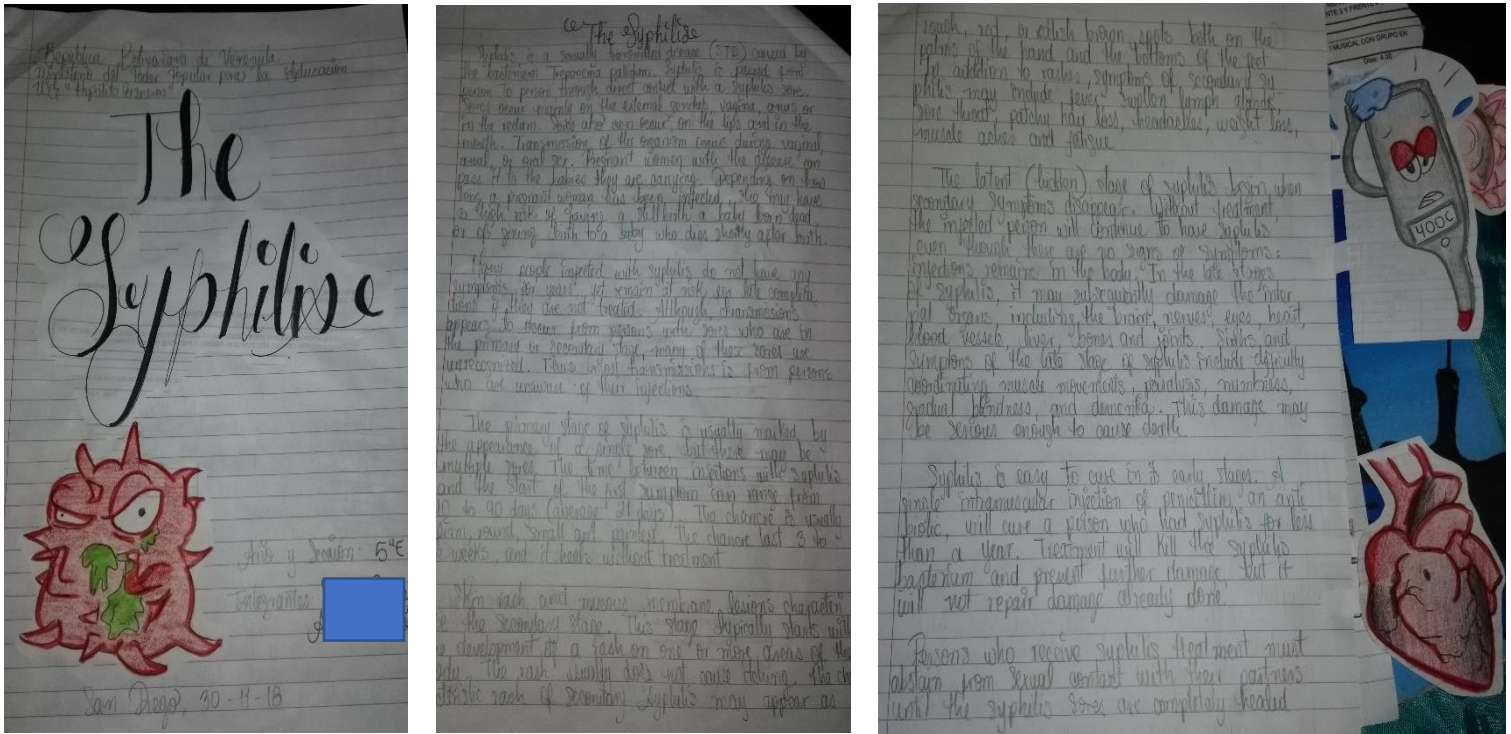 República Bolivariana de Venezuela
Ministerio del Poder Popular para la Educación
The
Syphilise
Año y Sección: 5to E
Integrantes:
San Diego, 30-11-18
The Syphilise
Syphilis is a sexually transmitted disease (STD) caused by
the bacterium Treponema pallidum. Syphilis is passed from
person to person through direct contact with a syphilis sore.
Sores occur mainly on the external genitals, vagina, anus, or
in the rectum. Sores also can occur on the lips and in the
mouth. Transmission of the organism occurs during vaginal,
anal, or oral sex. Pregnant women with the disease can
pass it to the babies they are carrying. Depending on how
long a pregnant woman has been infected, she may have
a high risk of having a stillbirth a baby born dead
or of giving birth to a baby who dies shortly after birth.
Many people infected with syphilis do not have any
symptoms for years, yet remain at risk for late complica
tions if they are not treated. Although, transmissions
appears to occur from persons with sores who are in
the primary or secondary stage, many of these sores are
unrecognized. Thus most transmissions is from persons
who are unaware of their infections.
The primary stage of syphilis is usually marked by
the appearance of a single sore but there may be
multiple sores. The time between infections with syphilis
and the start of the first symptom can range from
10 to 90 days (average 21 days). The chancre is usually
firm, round, small and painless. The chancre last 3 to
weeks, and it heals without treatment
Skin rash and mucous membrane lesions character
e the secondary stage. This stage typically starts with
development of a rash on one or more areas of the
The rash usually does not cause itching. The ch
rash of secondary syphilis may appear as
rough, red, or redish brown, spots both on the
palms of the hand and the bottoms of the feet
In addition to rashes, symptoms of secondary sy-
philis may include fever, swollen lymph glands,
sore throat, patchy hair loss, headaches, weight loss,
muscle aches and fatigue
The latent (hidden) stage of syphilis begin when
secondary symptoms disappear. Without treatment,
the infected person will continue to have syphilis
even though there are no signs of symptoms;
infections remains in the body. In the late stages
of syphilis, it may subsequently damage the inter
nal organs, including the brain, nerves, eyes, heart,
blood vessels, liver, bones and joints. Signs and
symptoms of the late stage of syphilis include difficulty
coordinating muscle movements, paralysis, numbness,
gradual blindness, and dementia. This damage may
be serious enough to cause death.
Syphilis is easy to cure in its early stages. A
single intramuscular injection of penicillin, an anti
biotic, will cure a person who had syphilis for less
than a year. Treatment will kill the syphilis
bacterium and prevent further damage, but it
will not repair damage already done
Persons who receive syphilis treatment must
abstain from sexual contact with their partners
until the syphilis sores are completely healed
MUSICAL CON GRUPO EN
40°C